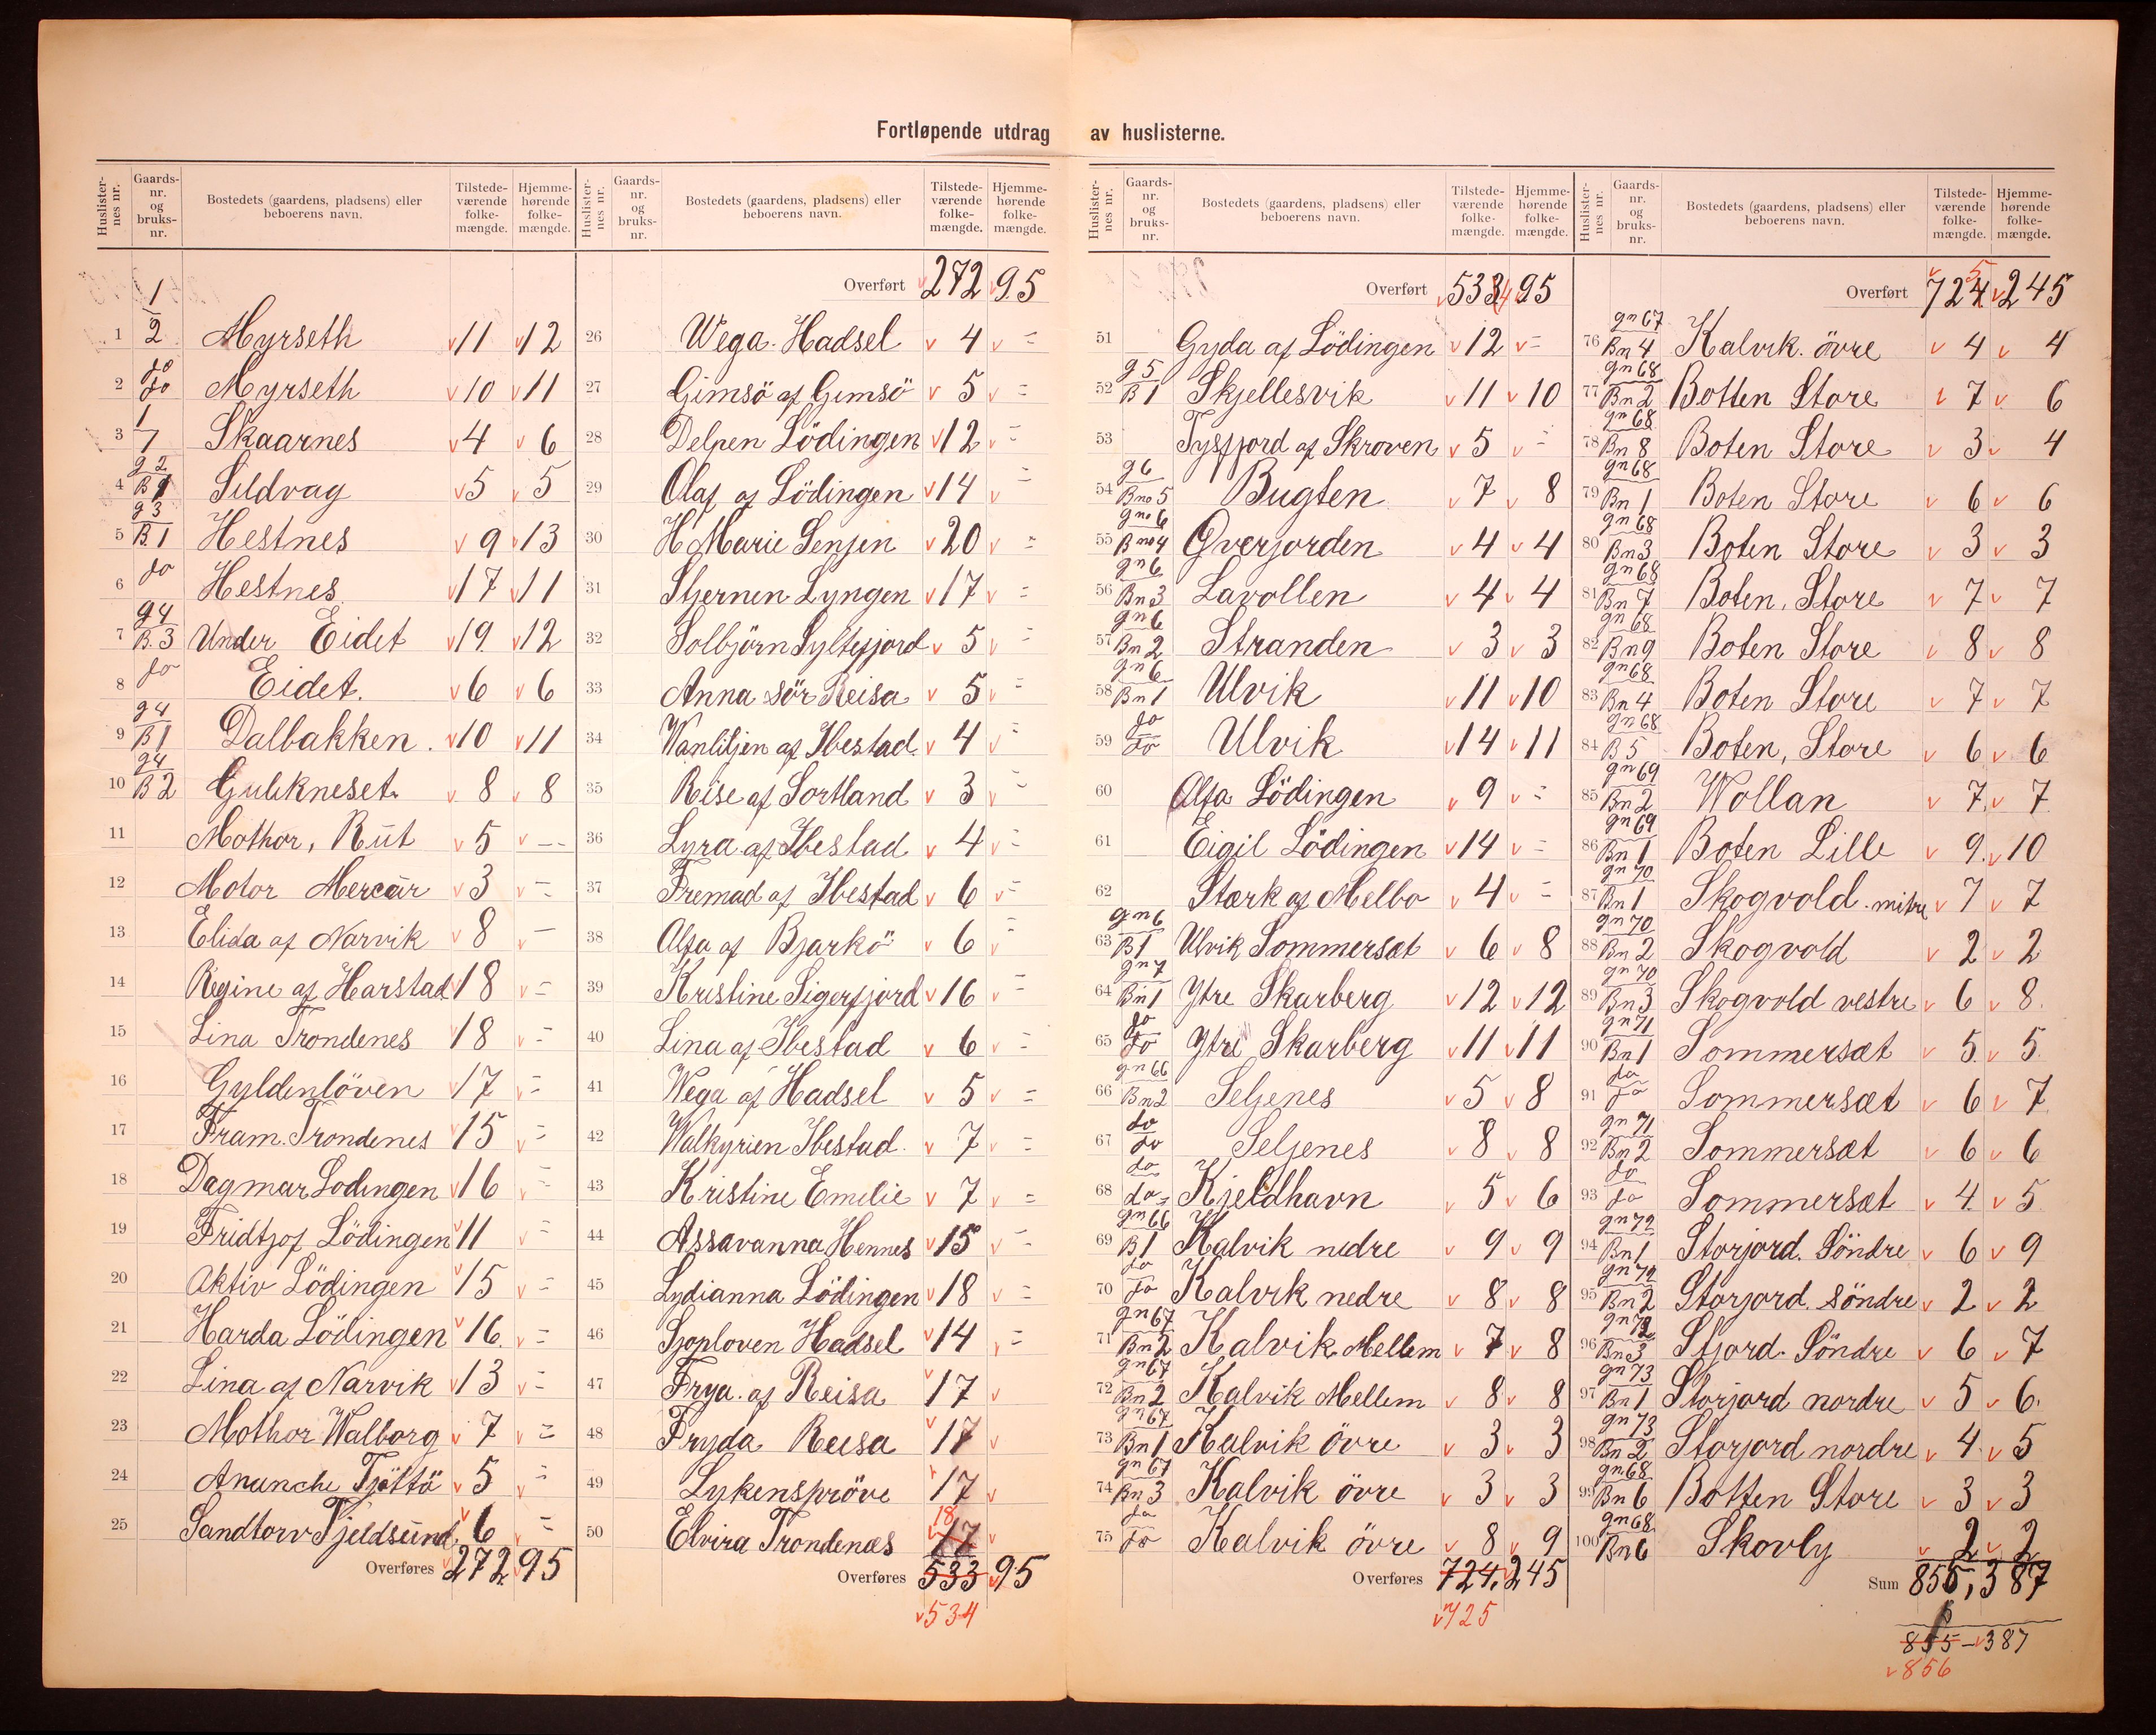 Fortløpende utdrag av huslisterne.
Huslister-nes nr. Gaards-nr. og bruks-nr. Bostedets (gaardens, pladsens) eller beboerens navn. Tilstede-værende folke-mængde. Hjemme-hørende folke-mængde.
1 1/2 Myrseth 11 12
2 do do Myrseth 10 11
3 1/7 Skaarnes 4 6
4 g 2 B 1 Sildvag 5 5
5 g 3 B.1 Hestnes 9 13
6 do Hestnes 17 11
7 g4 B.3 Under Eidet 19. 12
8 do Eidet. 6 6
9 g4 B1 Dalbakken. 10 11
10 g4 B2 Gulikneset. 8 8
11 Mothor, Rut 5 --
12 Motor Mercur 3 =
13 Elida af Narvik 8 -
14 Regine af Harstad 18 =
15 Lina Trondenes 18 =
16 Gyldenlöven 17 =
17 Fram. Trondenes 15 =
18 Dagmar Lodingen 16 =
19 Fridtjof Lödingen 11 =
20 Aktiv Lödingen 15 =
21 Harda Lödingen 16. =
22 Lina af Narvik 13 =
23 Mothor Walborg 7 =
24 Anunche Tjöttö 5 =
25 Sandtorv Tjeldsund 6 =
Overføres 272. 95
Huslister-nes nr. Gaards-nr. og bruks-nr. Bostedets (gaardens, pladsens) eller beboerens navn. Tilstede-værende folke-mængde. Hjemme-hørende folke-mængde.
Overført 272 95
26 Wega. Hadsel 4 =
27 Gimsö af Gimsö 5 =
28 Delfen Lödingen 12 =
29 Olaf af Lödingen 14 =
30 H Marie Senjen 20 =
31 Stjernen Lyngen 17 =
32 Solbjörn Syltefjord 5 =
33 Anna sör Reisa 5 =
34 Vanliljen af Ibestad. 4 =
35 Reise af Sortland 3 =
36 Lyra af Ibestad 4 =
37 Fremad af Ibestad 6 =
38 Alfa af Bjarkö 6 =
39 Kristine Sigerfjord 16 =
40 Lina af Ibestad 6 =
41 Wega af Hadsel 5 =
42 Walkyrien Ibestad. 7 =
43 Kristine Emelie 7 =
44 Assavanna Hennes 15 =
45 Lydianna Lödingen 18 =
46 Sjoploven Hadsel 14 =
47 Frya. af Reisa 17
48 Fryda Reisa 17
49 Lykenspröve 17
50 Elvira Trondenæs 17 18
Overføres 533 95
534
Huslister-nes nr. Gaards-nr. og bruks-nr. Bostedets (gaardens, pladsens) eller beboerens navn. Tilstede-værende folke-mængde. Hjemme-hørende folke-mængde.
Overført 533 4 95
51 Gyda af Lödingen 12 =
52 g 5 B 1 Skjellesvik 11 10
53 Tysfjord af Skroven 5 =
54 g 6 Bno 5 Bugten 7 8
55 gno 6 Bno 4 Överjorden 4 4
56 gn 6 Bn 3 Lavollen 4 4
57 gn 6 Bn 2 Stranden 3 3
58 gn 6 Bn 1 Ulvik 11 10
59 do do Ulvik 14 11
60 Alfa Lödingen 9 =
61 Eigil Lödingen 14 =
62 Stærk af Melbo 4 =
63 gn6 B1 Ulvik Sommersæt 6 8
64 gn 7 Bn1 Ytre Skarberg 12 12
65 do do Ytre Skarberg 11 11
66 gn 66 Bn2 Seljenes 5 8
67 do do Seljenes 8 8
68 do do Kjeldhavn 5 6
69 gn 66 B 1 Kalvik nedre 9 9
70 do do Kalvik nedre 8 8
71 gn 67 Bn 2 Kalvik Mellem 7 8
72 gn 67 Bn 2 Kalvik Mellem 8 8
73 gn 67 Bn 1 Kalvik övre 3 3
74 gn 67 Bn 3 Kalvik övre 3 3
75 do do Kalvik övre 8 9
Overføres 724. 245
725
Huslister-nes nr. Gaards-nr. og bruks-nr. Bostedets (gaardens, pladsens) eller beboerens navn. Tilstede-værende folke-mængde. Hjemme-hørende folke-mængde.
Overført 724 5 245
76 gn 67 Bn 4 Kalvik. övre 4 4
77 gn 68 Bn 2 Botten Store 7 6
78 gn 68 Bn 8 Boten Store 3 4
79 gn 68 Bn 1 Boten Store 6 6
80 gn 68 Bn3 Boten Store 3 3
81 gn 68 Bn 7 Boten, Store 7 7
82 gn 68 Bn 9 Boten Store 8 8
83 gn 68 Bn 4 Boten Store 7 7
84 gn 68 B 5 Boten, Store 6 6
85 gn 69 Bn 2 Wollan 7. 7
86 gn 69 Bn 1 Boten Lille 9. 10
87 gn 70 Bn 1 Skogvold. mitre 7 7
88 gn 70 Bn 2 Skogvold 2 2
89 gn 70 Bn 3 Skogvold vestre 6 8.
90 gn 71 Bn 1 Sommersæt 5. 5.
91 do do Sommersæt 6 7
92 gn 71 Bn 2 Sommersæt 6 6
93 do do Sommersæt 4. 5.
94 gn 72 Bn 1 Storjord. Söndre 6 9
95 gn 72 Bn 2 Storjord. söndre 2 2
96 gn 72 Bn 3 Stjord. Söndre 6 7
97 gn 73 Bn 1 Storjord nordre 5 6.
98 gn 73 Bn 2 Storjord nordre 4. 5
99 gn 68 Bn 6 Botten Store 3 3
100 gn 68 Bn 6 Skovly 2 2
Sum 855, 387
855 - 387
856